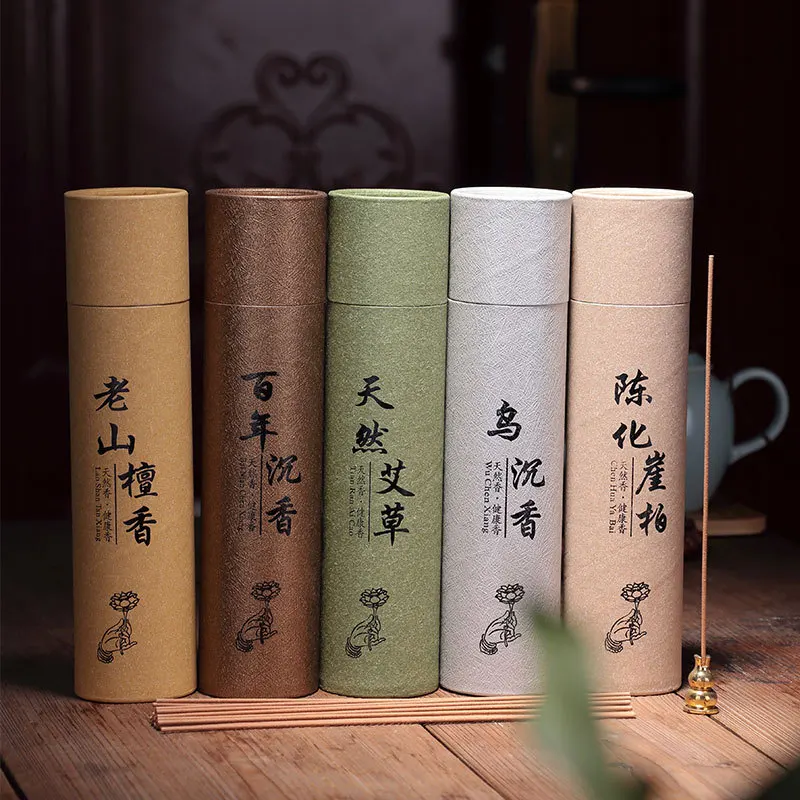 老山檀香
天然香·健康香
Lao Shan Tan Xiang
百年沉香
天然香·健康香
天然艾草
天然香·健康香
Tian Ran Ai Cao
乌沉香
天然香·健康香
Wu Chen Xiang
陈化崖柏
天然香·健康香
Chen Hua Ya Bai